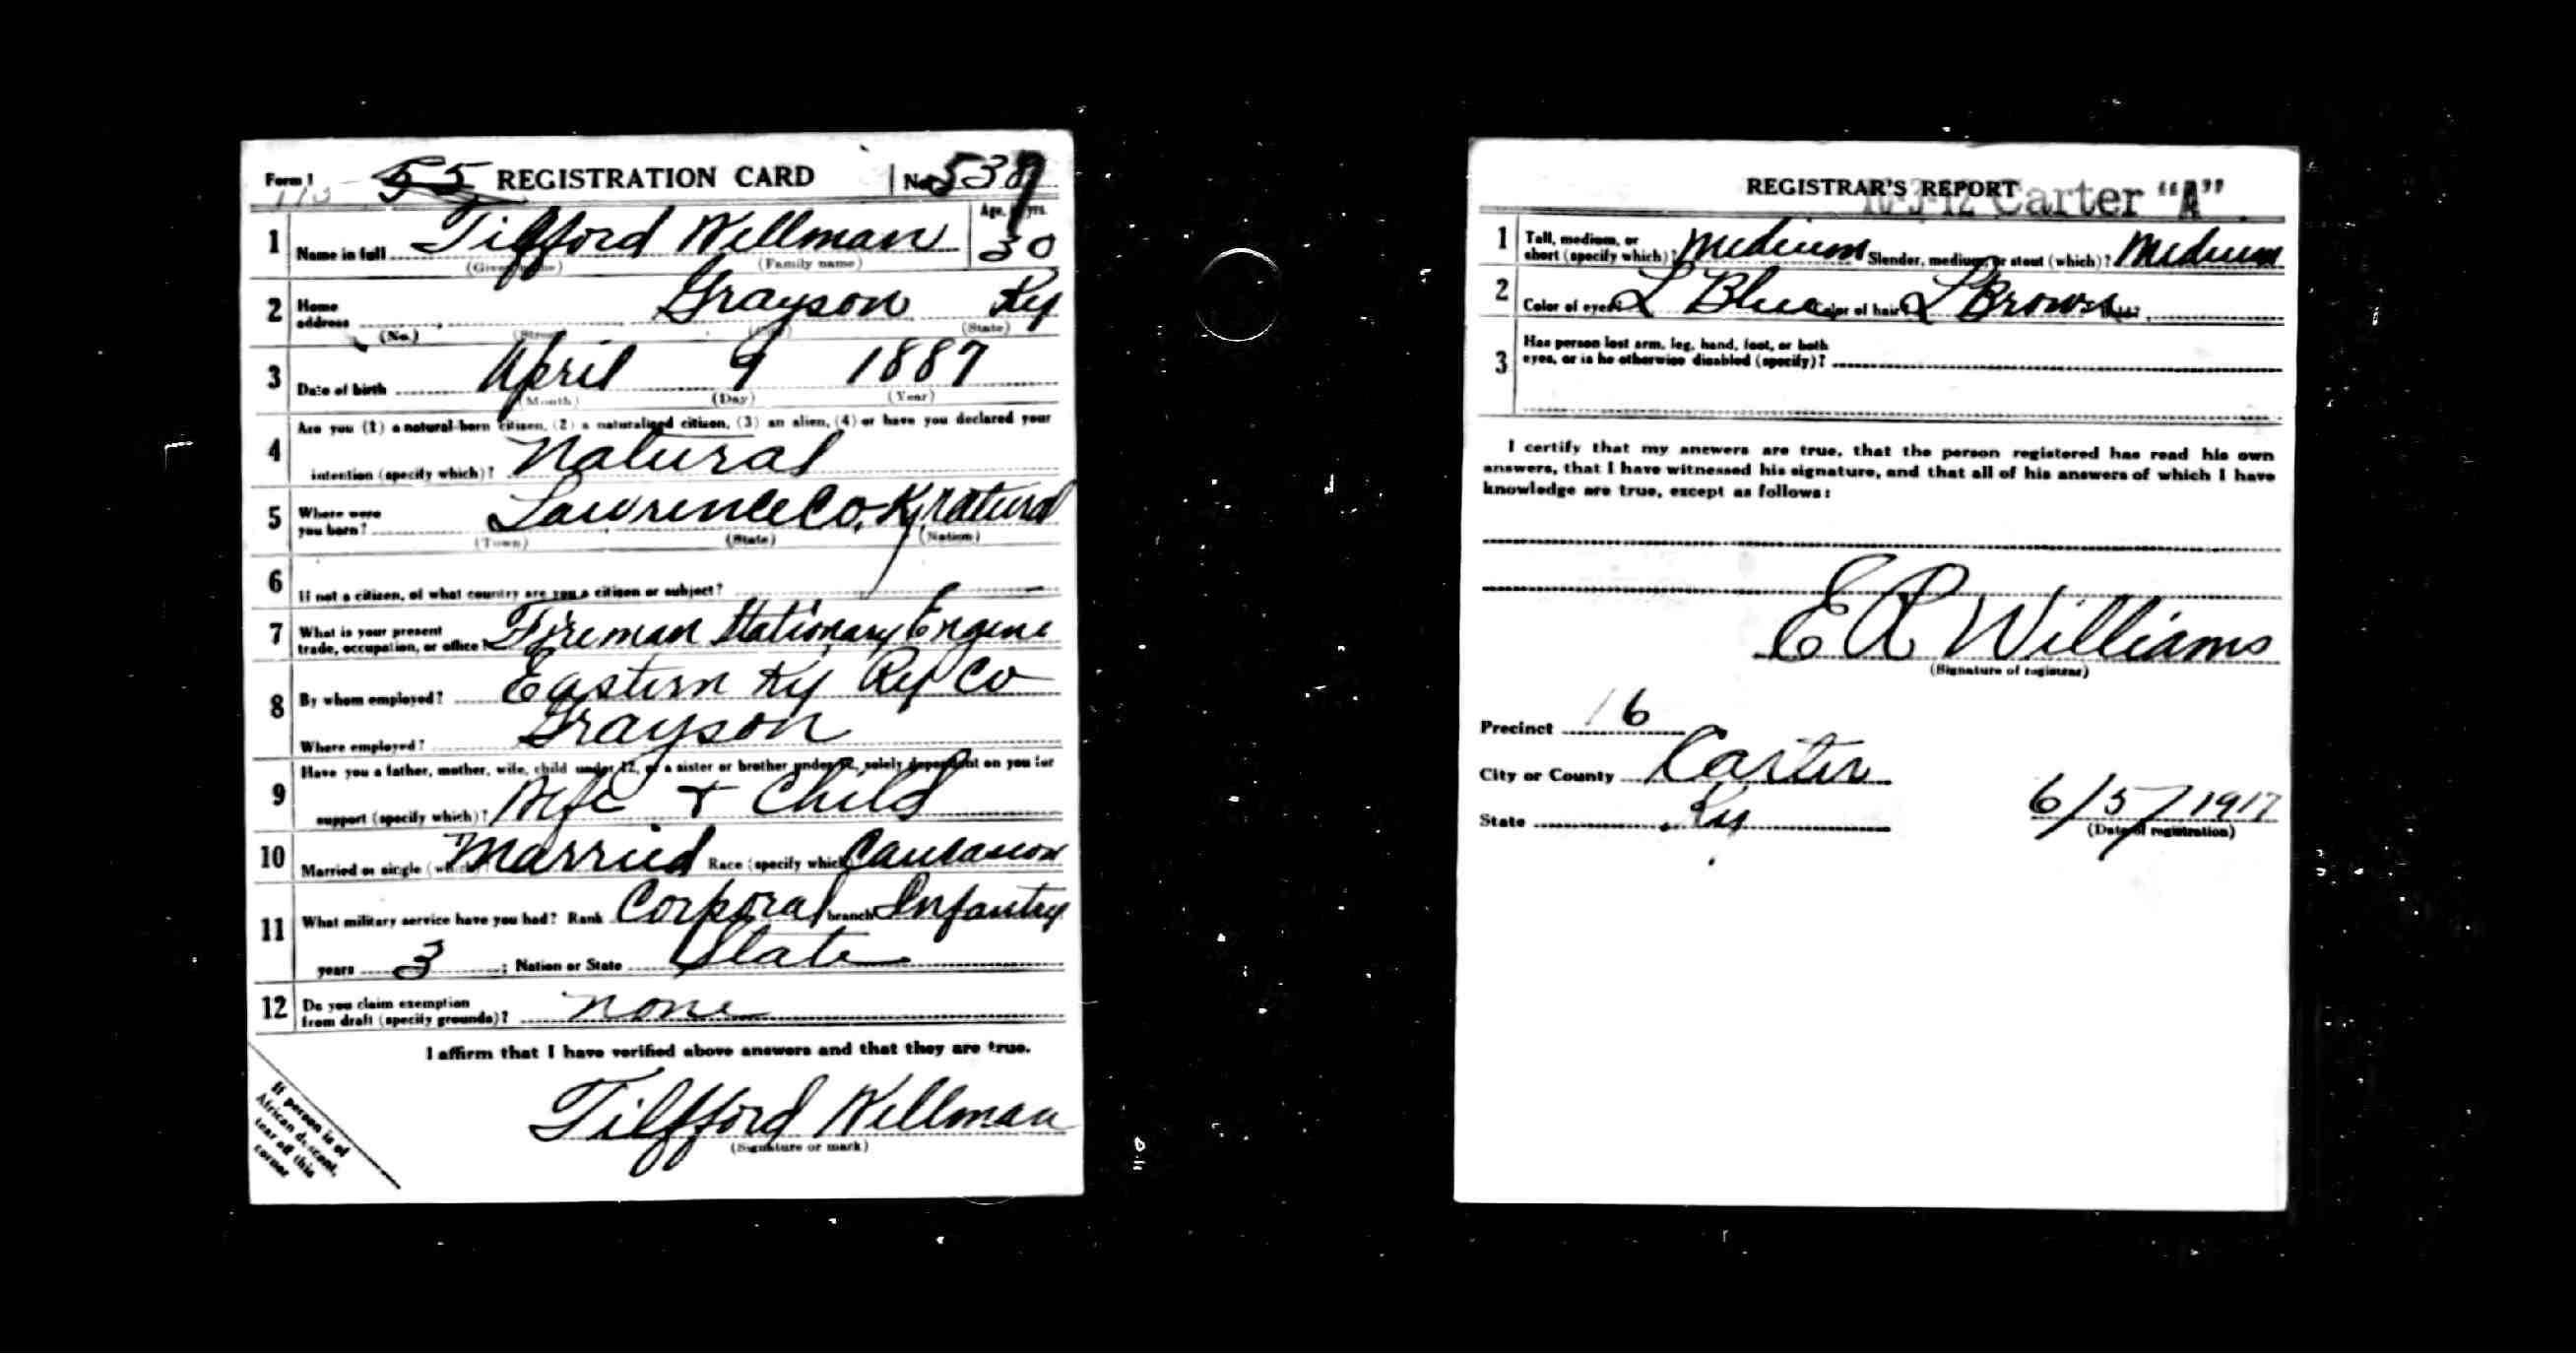 Form 1
113
55 REGISTRATION CARD No. 539
1 Name in full Tilfford Wellman Age, yrs. 30
(Given name) (Family name)
2 Home address Grayson Ky
(No.) (Street) (City) (State)
3 Date of birth April 9 1887
(Month) (Day) (Year)
4 Are you (1) a natural-born citizen, (2) a naturalized citizen, (3) an alien, (4) or have you declared your
intention (specify which)? Natural
5 Where were you born? Lawrence Co. Ky natural
(Town) (State) (Nation)
6 If not a citizen, of what country are you a citizen or subject?
7 What is your present trade, occupation, or office? Fireman Stationary Engine
8 By whom employed? Eastern Ky Ry Co
Where employed? Grayson
9 Have you a father, mother, wife, child under 12, or a sister or brother under 12, solely dependent on you for
support (specify which)? Wife + Child
10 Married or single (which)? Married Race (specify which)? Caucasion
11 What military service have you had? Rank Corporal branch Infantry
years 3 ; Nation or State State
12 Do you claim exemption from draft (specify grounds)? none
I affirm that I have verified above answers and that they are true.
Tilfford Wellman
(Signature or mark)
If person is of
African descent,
tear off this
corner
REGISTRAR'S REPORT
Carter "A"
1 Tall, medium, or short (specify which)? Medium Slender, medium, or stout (which)? Medium
2 Color of eyes? L Blue Color of hair? L Brown Bald?
3 Has person lost arm, leg, hand, foot, or both
eyes, or is he otherwise disabled (specify)?
I certify that my answers are true, that the person registered has read his own
answers, that I have witnessed his signature, and that all of his answers of which I have
knowledge are true, except as follows:
E R Williams
(Signature of registrar)
Precinct 16
City or County Carter
State Ky
6/5/1917
(Date of registration)